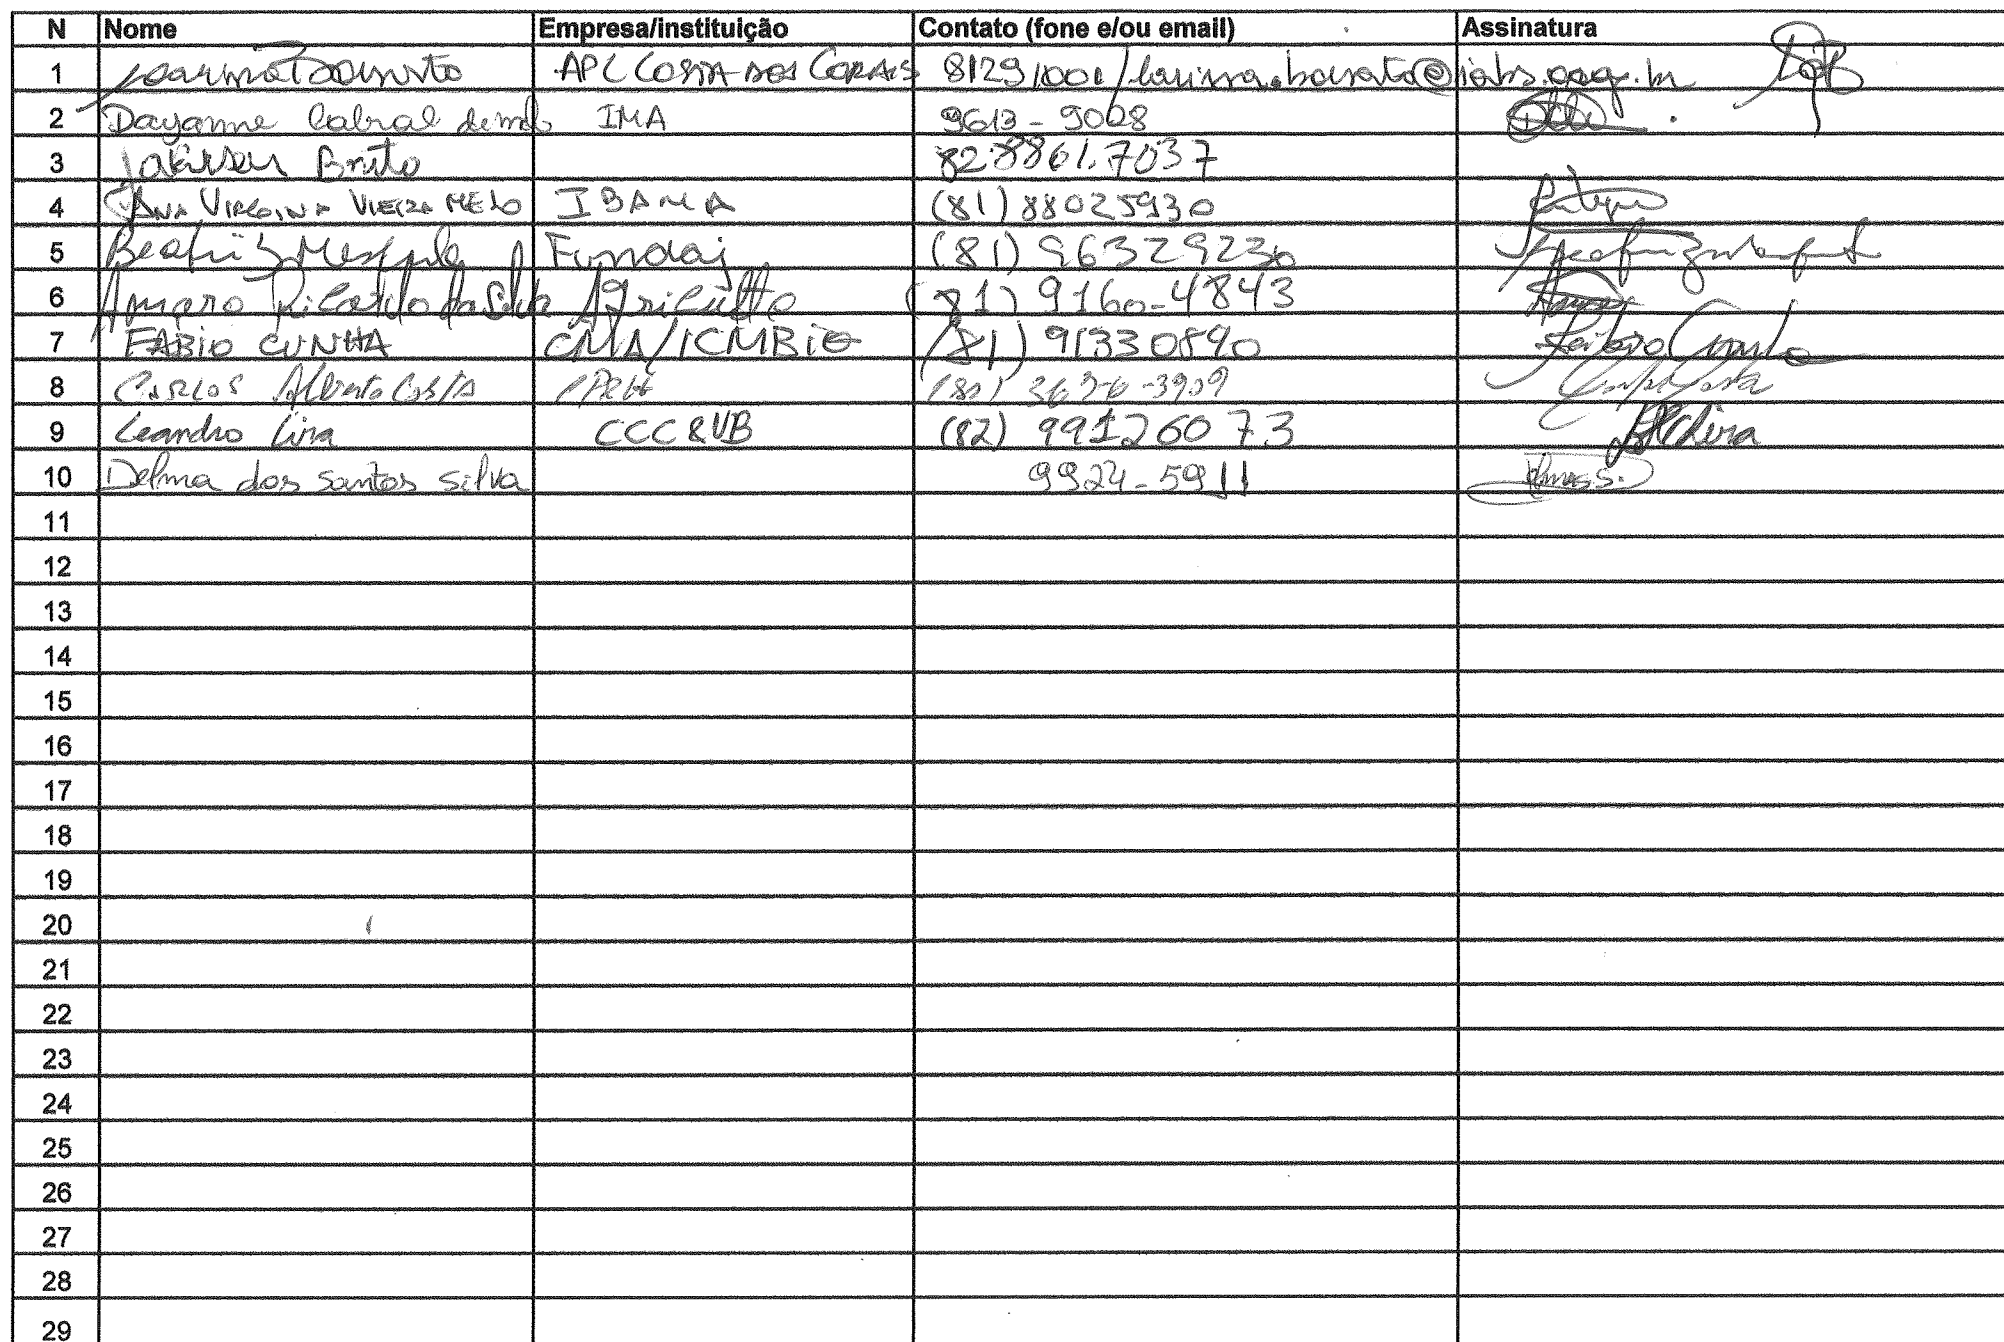 N Nome Empresa/instituição Contato (fone e/ou email) Assinatura
1 APL COSTA DOS CORAIS 81291001/larissa.barreto@iabs.org.br
2 Dayanne Cabral de IMA 9613-9008
3 Brito 82.8861.7037
4 ANA VIRGINIA VIEIRA MELO IBAMA (81) 88025930
5 Beatriz Mesquita Fundaj (81) 96329230
6 Amaro Ricardo da Silva (81) 9160-4843
7 FABIO CUNHA CMA/ICMBio (81) 91330590 Fabio Cunha
8 CARLOS Alberto COSTA
9 Leandro Lira CCC&VB (82) 99126073 Lira
10 Delma dos Santos Silva 9924-5911
11
12
13
14
15
16
17
18
19
20
21
22
23
24
25
26
27
28
29